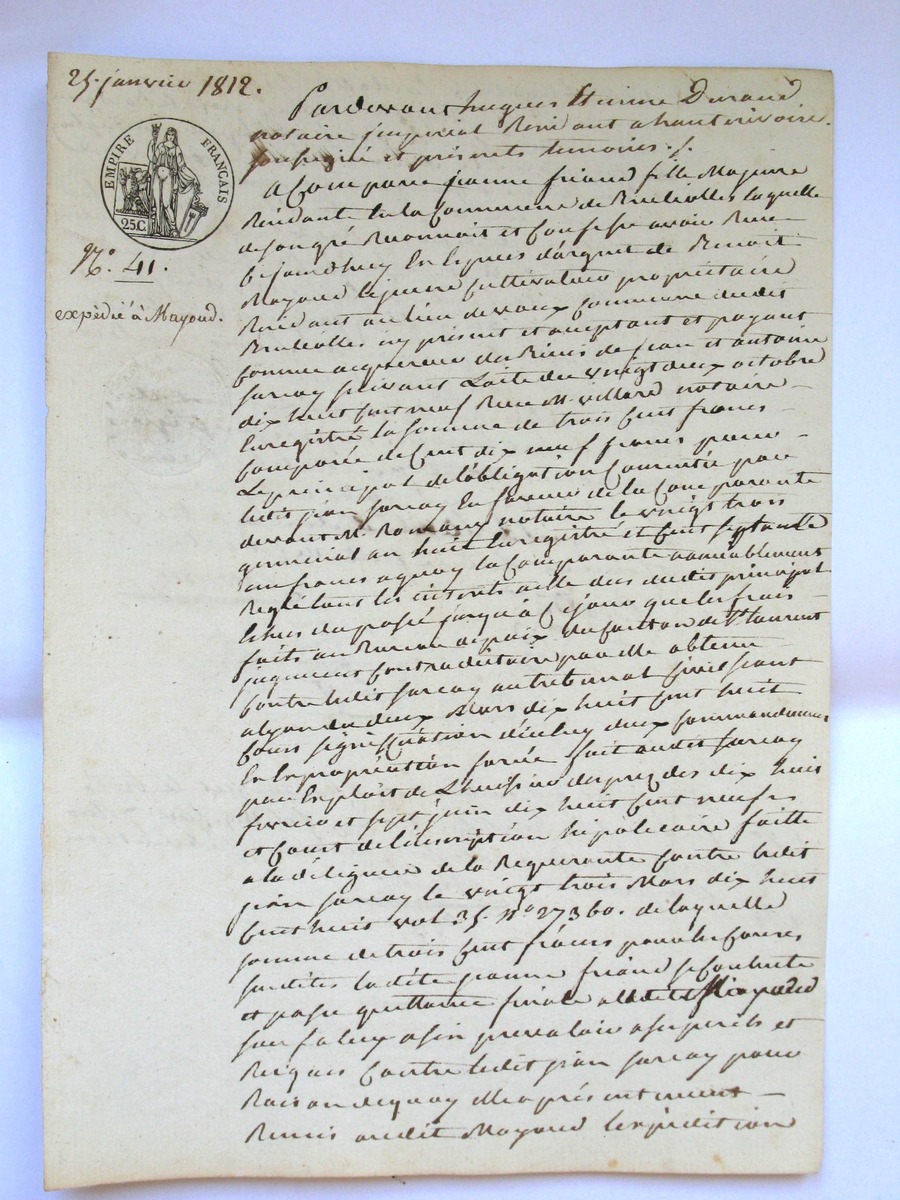 25. janvier 1812.
EMPIRE FRANÇAIS
25C.
N.º 41.
expédié à Mayoud.
Pardevant Jacques Etienne Durand
notaire imperial Residant a hauterivoire
soussigné et présents temoins./.
a Comparu jeanne friand fille Majeure
Residant en la Commune de Brulioles laquelle
de son gré Reconnait et Confesse avoir Reçu
Cejourdhuy En Espèces d'argent de Benoit
Mayoud le jeune Cultivateur propriétaire
Residant au lieu de vaux Commune dudit
Brulioles icy présent et aceptant et payant
Comme acquereur des Biens de jean et antoine
sarcay suivant L'acte du vingt deux octobre
dix huit cent neuf Reçu Mr. villard notaire
Enregistré la somme de trois Cent francs
Composée de Cent dix neuf francs pour
Le principal de l'obligation Consentie par
ledit jean sarcay En faveur de la Comparante
devant Mr. Romany notaire le vingt trois
germinal an huit Enregistré et Cent septante
un francs a quoy la Comparante amiablement
Reglé tant les interets dudit principal
Echus du passé jusqu'à Cejour que les frais
faits au Bureau de paix du Canton de St. laurent
jugement Contradictoire par elle obtenu
Contre ledit sarcay au tribunal Civil séant
a lyon du deux Mars dix huit Cent huit
Cours signification d'iceluy deux Commandemens
En Expropriation forcée fait audit sarcay
par Exploit de L'huissier desprez des dix huit
fevrier et sept juin dix huit Cent neuf
et Cout de l'inscription hipotecaire faitte
a la diligence de la Requerante Contre ledit
jean sarcay le vingt trois Mars dix huit
Cent huit vol. 35. No. 27360. de laquelle
somme de trois Cent francs pour les Causes
susdites ladite jeanne friand se Contente
et passe quittance finale audit Mayoud
sauf a luy a s'en prevaloir a ses perils et
Risques Contre ledit jean sarcay pour
Raison de quoy elle a présentement
Remis audit Mayoud l'expédition